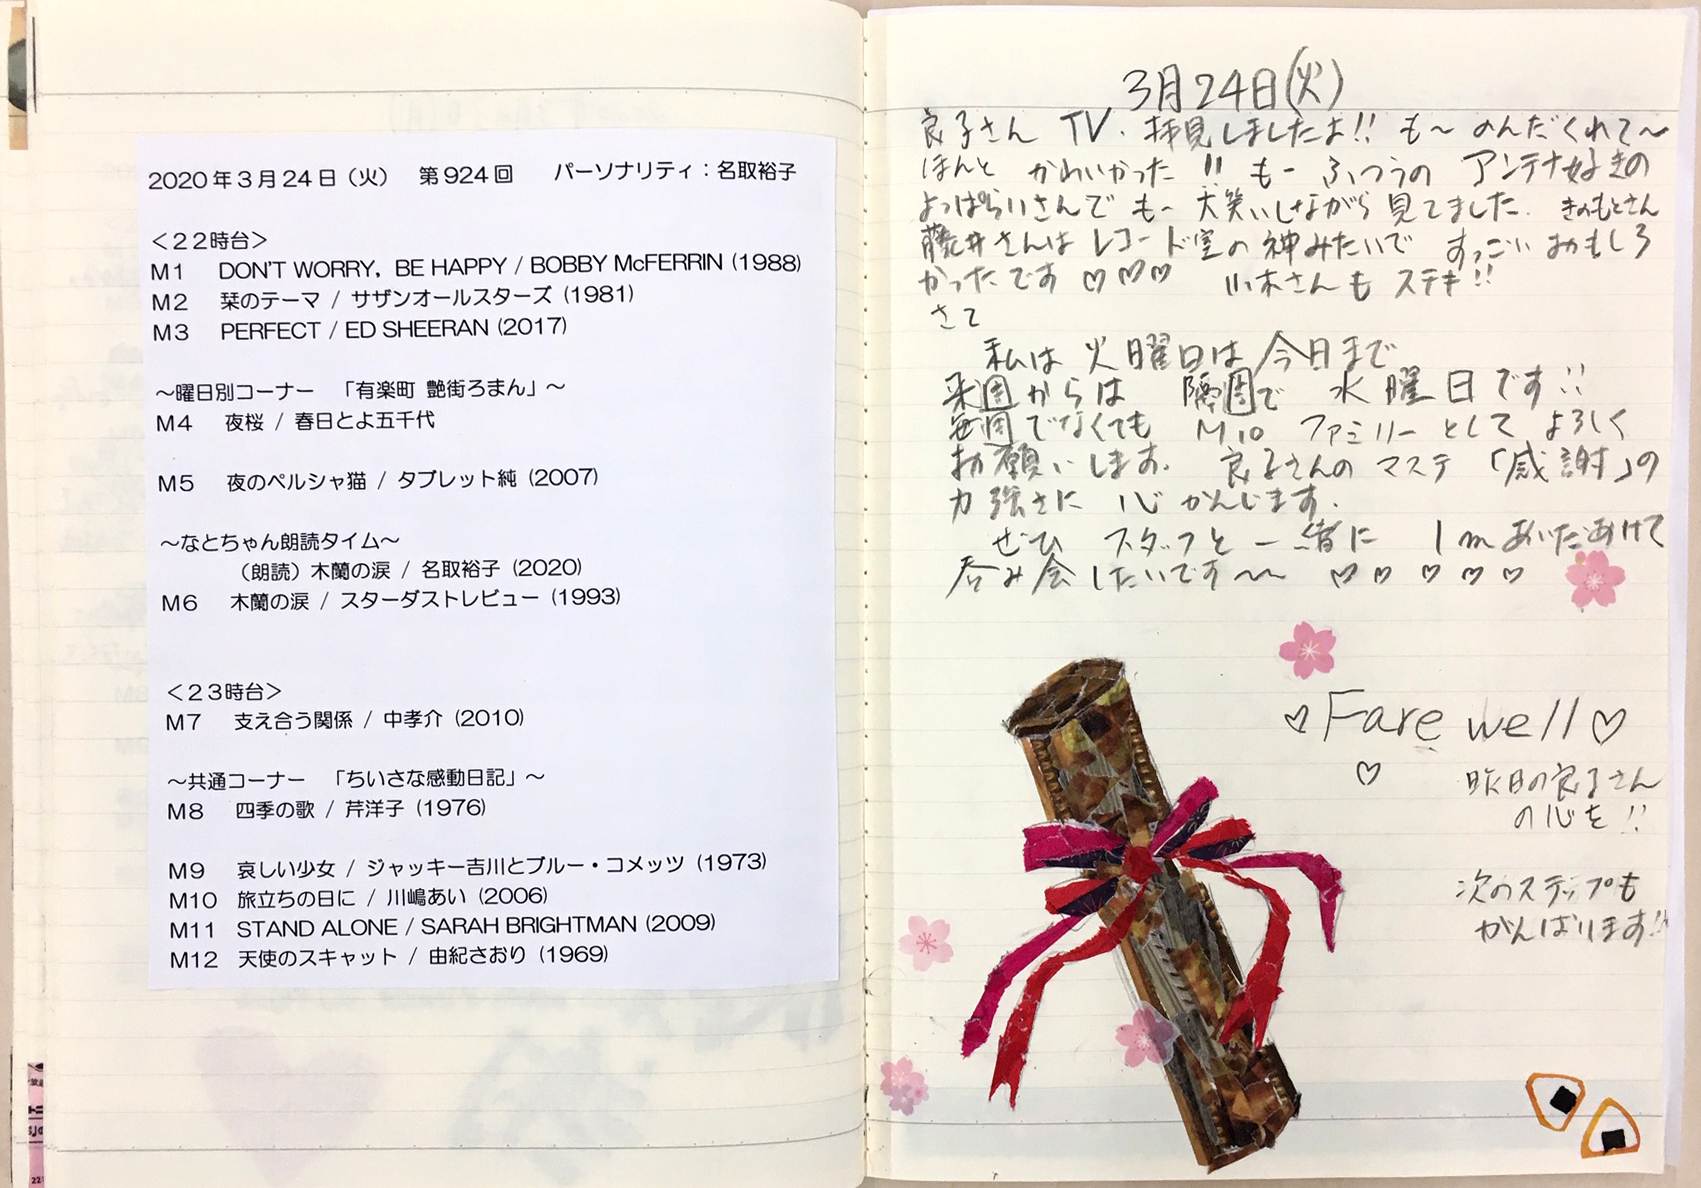 2020年3月24日（火）　第924回　　パーソナリティ：名取裕子
＜22時台＞
M1　DON'T WORRY, BE HAPPY / BOBBY McFERRIN (1988)
M2　栞のテーマ / サザンオールスターズ (1981)
M3　PERFECT / ED SHEERAN (2017)
～曜日別コーナー　「有楽町 艶街ろまん」～
M4　夜桜 / 春日とよ五千代
M5　夜のペルシャ猫 / タブレット純 (2007)
～なとちゃん朗読タイム～
（朗読）木蘭の涙 / 名取裕子 (2020)
M6　木蘭の涙 / スターダストレビュー (1993)
＜23時台＞
M7　支え合う関係 / 中孝介 (2010)
～共通コーナー　「ちいさな感動日記」～
M8　四季の歌 / 芹洋子 (1976)
M9　哀しい少女 / ジャッキー吉川とブルー・コメッツ (1973)
M10　旅立ちの日に / 川嶋あい (2006)
M11　STAND ALONE / SARAH BRIGHTMAN (2009)
M12　天使のスキャット / 由紀さおり (1969)
3月24日(火)
良子さん TV. 拝見しましたよ!! も〜 のんだくれて〜
ほんと かわいかった!! もー ふつうの アンテナ好きの
よっぱらいさんで も〜 大笑いしながら 見てました. きのもとさん
藤井さんは レコード室の 神みたいで すっごい おもしろ
かったです ♡♡♡ 小木さんも ステキ!!
さて
私は 火曜日は 今日まで
来週からは 隔週で 水曜日です!!
毎週でなくても M10 ファミリーとして よろしく
お願いします. 良子さんの マステ「感謝」の
力強さに 心 かんじます.
ぜひ スタッフと 一緒に 1m あいだあけて
呑み会したいです〜〜 ♡♡♡♡♡
♡Fare well♡
♡
昨日の良子さん
の心を!!
次のステップも
がんばります!!